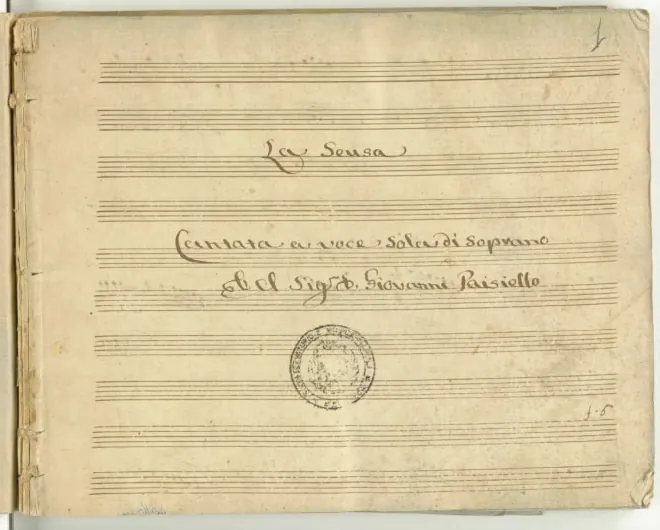 1
La Scusa
Cantata a voce sola di soprano
Del Sigr D. Giovanni Paisiello